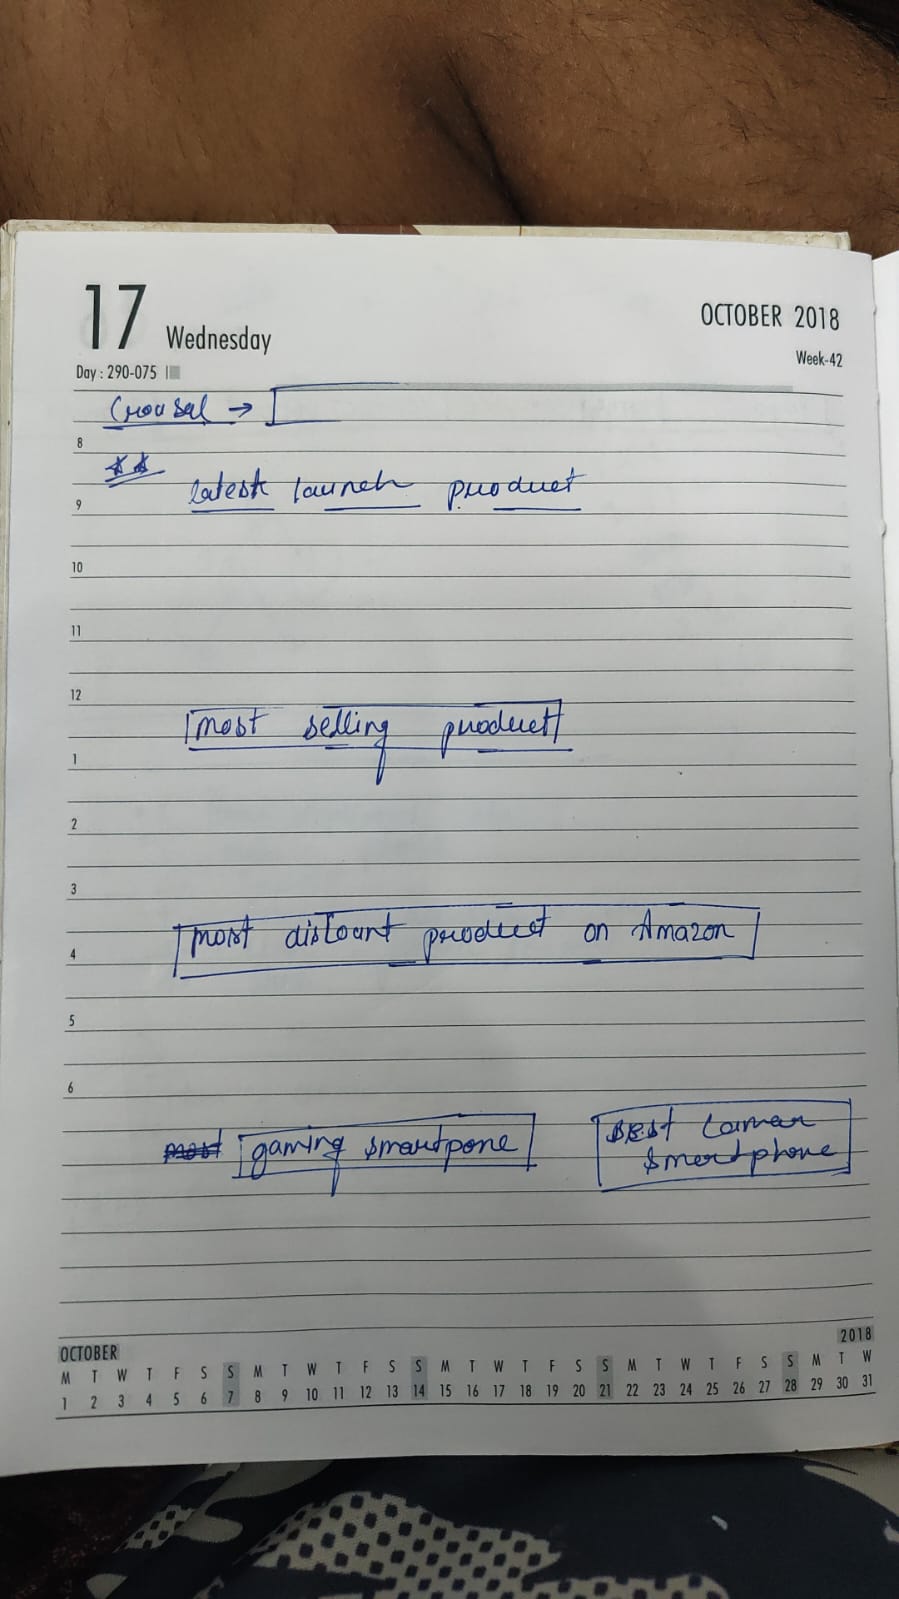 17 Wednesday
OCTOBER 2018
Week-42
Day : 290-075
Crousal →
8
latest launch product
9
10
11
12
most selling product
1
2
3
most discount product on Amazon
4
5
6
most gaming smartpone
Best Camar
smartphone
OCTOBER 2018
M T W T F S S M T W T F S S M T W T F S S M T W T F S S M T W
1 2 3 4 5 6 7 8 9 10 11 12 13 14 15 16 17 18 19 20 21 22 23 24 25 26 27 28 29 30 31